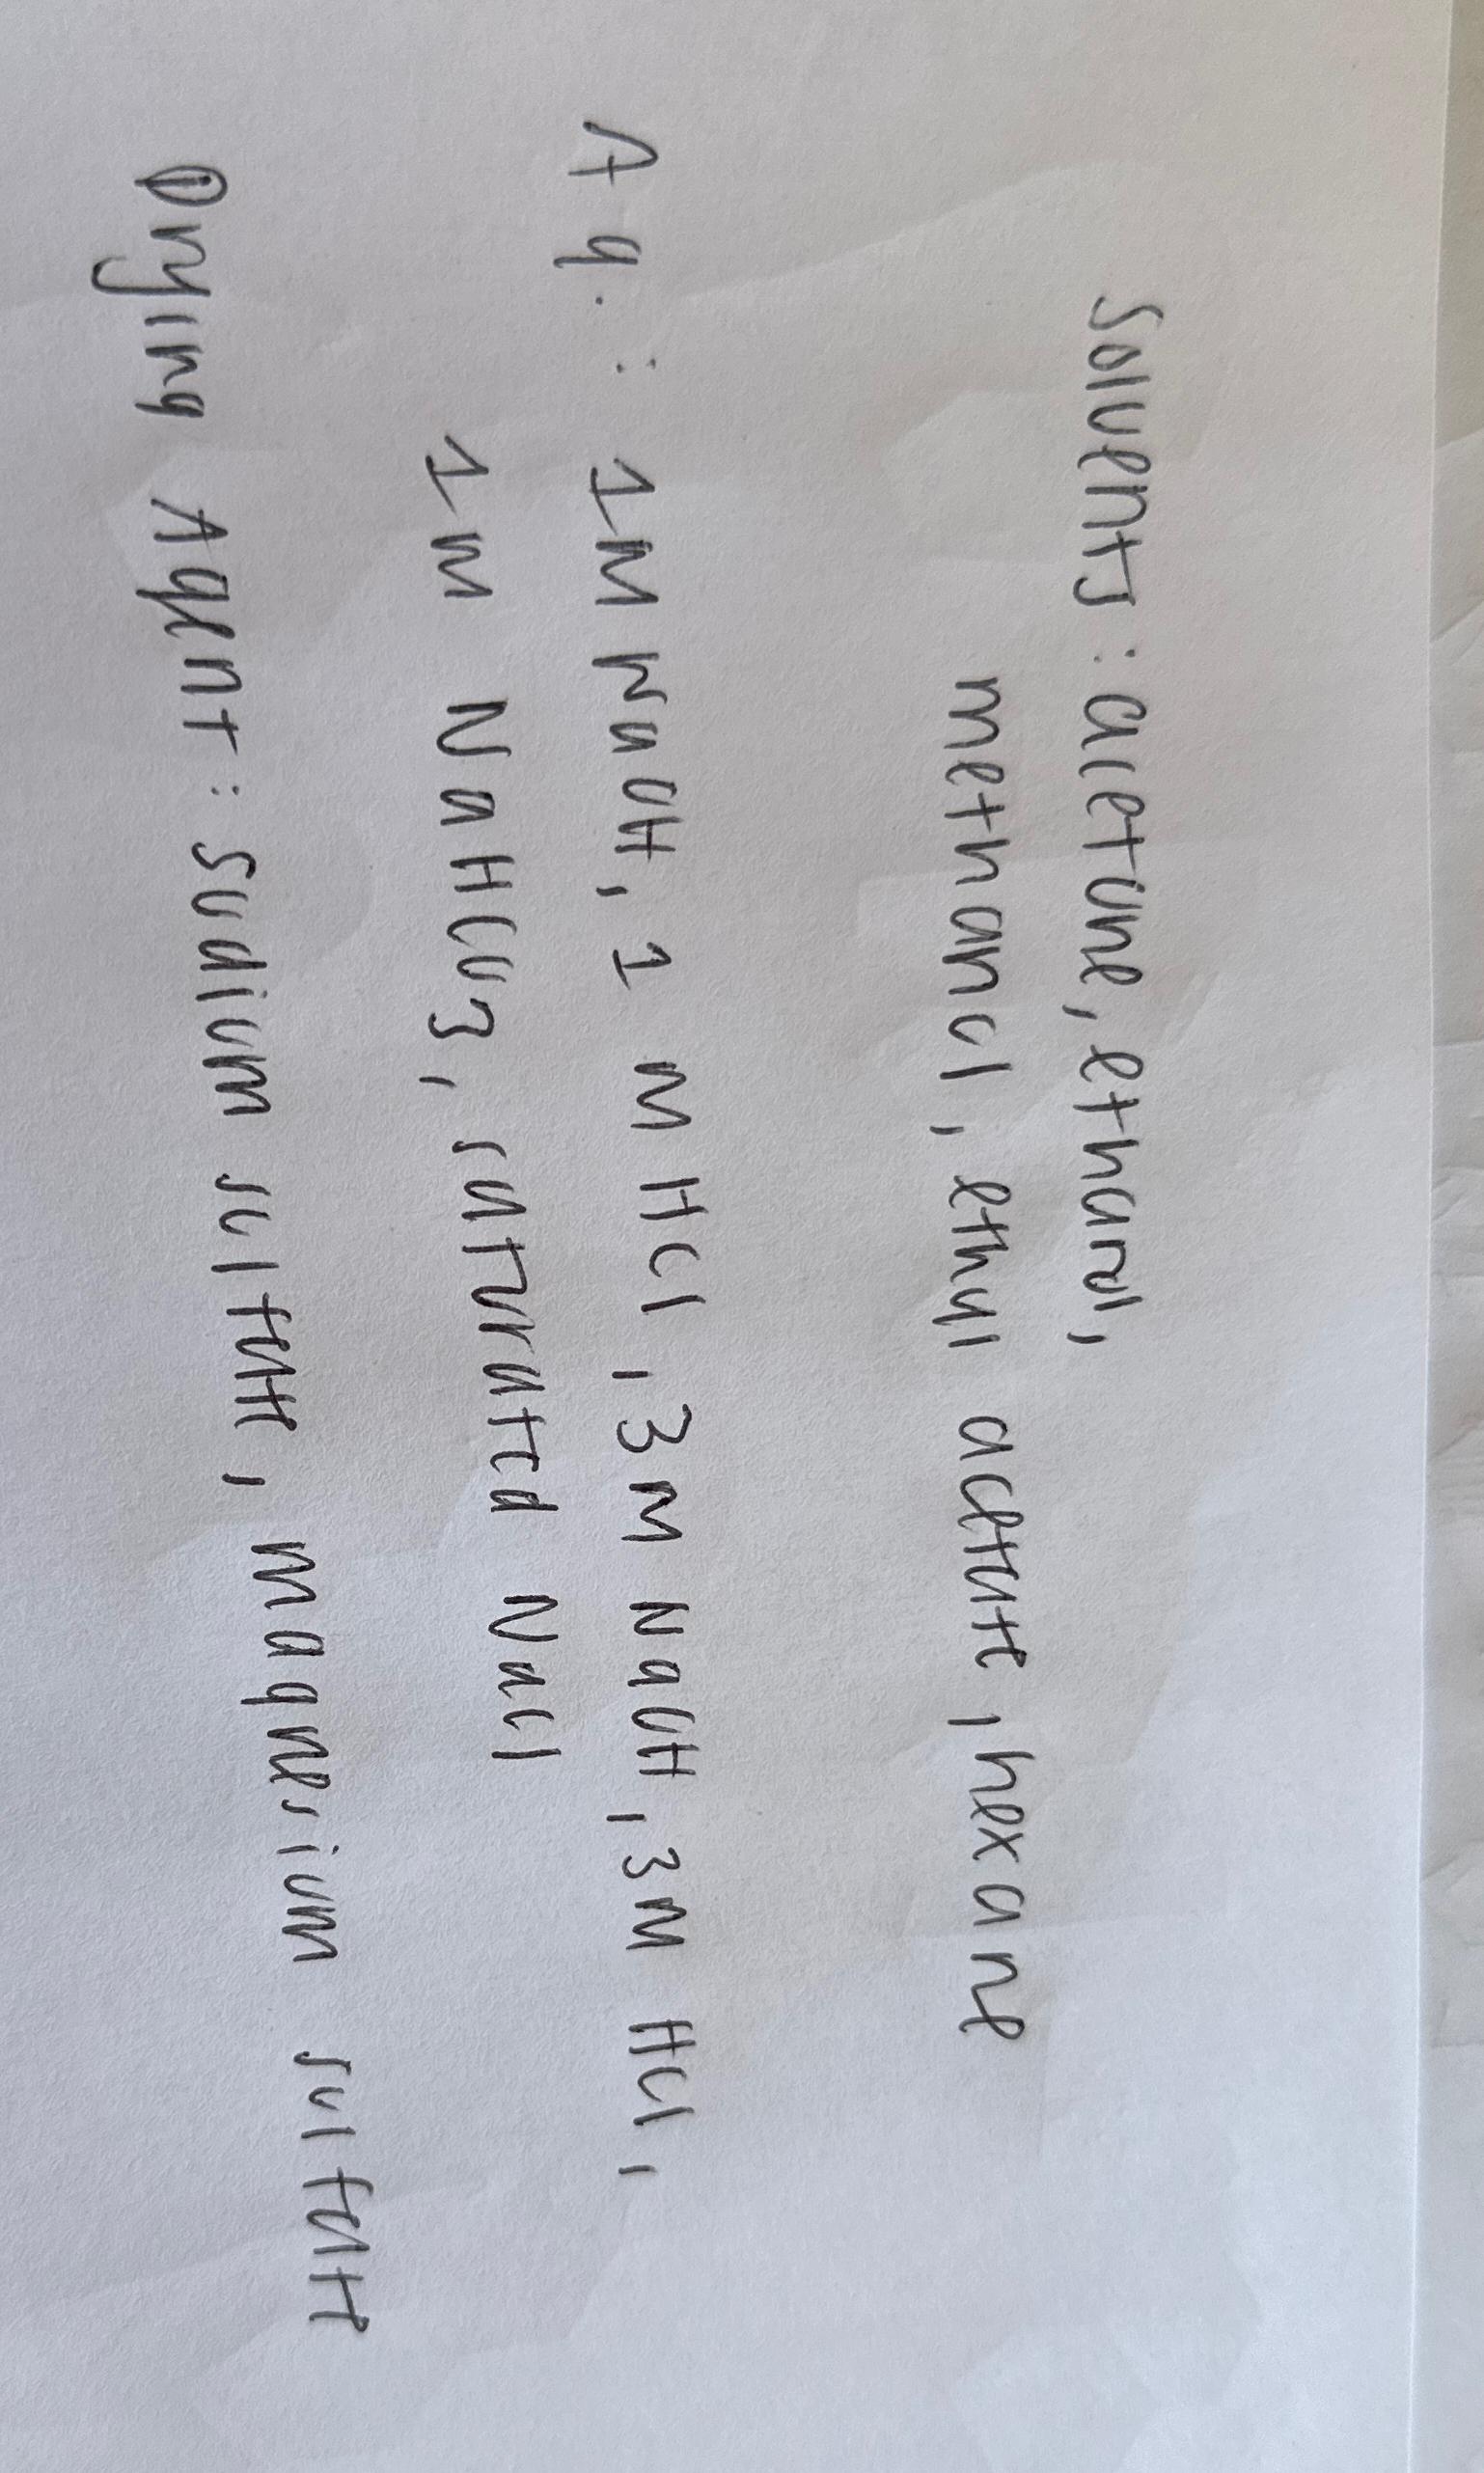 Solvents: acetone, ethanol,
methanol, ethyl acetate, hexane
Aq.: 1M NaOH, 1 M HCl, 3M NaOH, 3M HCl,
1M NaHCO3, saturated NaCl
Drying Agent: Sodium sulfate, magnesium sulfate